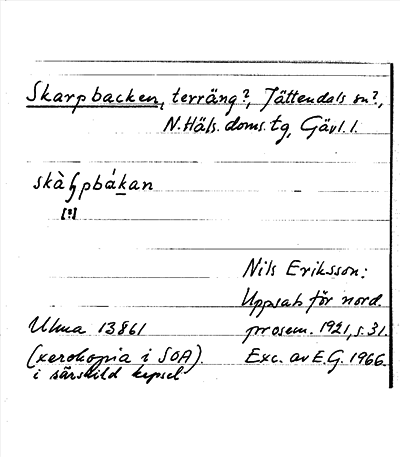 Skarpbacken, terräng?, Jättendals sn?,
N. Häls. doms. tg, Gävl. l.
skàɧpbákan
[!]
Nils Eriksson:
Uppsats för nord.
Ulma 13861
prosem. 1921, s. 31.
(xerokopia i SOA).
Exc. av E.G. 1966.
i särskild kapsel